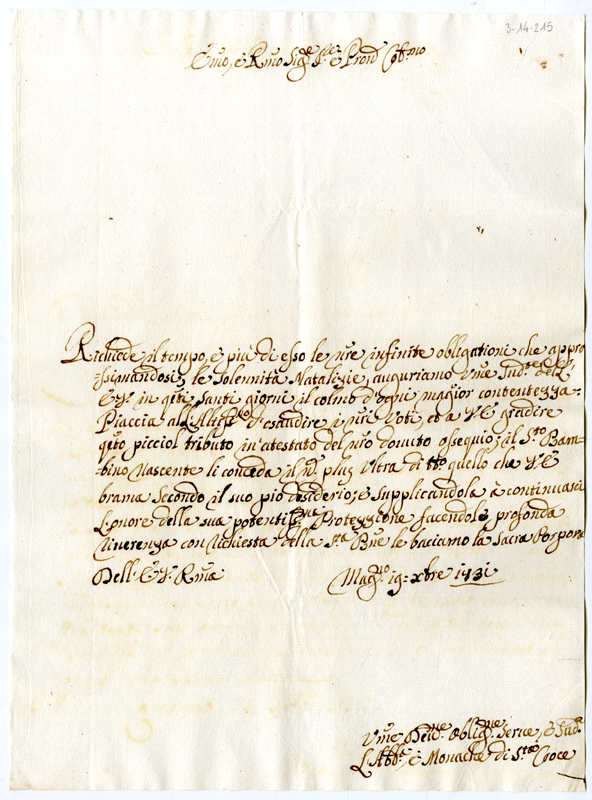 3-14-215
Emo, e Rmo Sig.e P.e è Pron Col.mo
Richiede il tempo, e più di esso le nre infinite obligationi che appro
=ssignandosi le solennità Natalizie, auguriamo Vme Sud.te Dell'
E.V. in qti santi giorni il colmo d'ogni magior contentezza.
Piaccia all'Altiss.mo d'esaudire i nri Voti, et a V.E gradire
qto picciol tributo in atestato del nro dovuto ossequio; il S.to Bam=
=bino Nascente li conceda il nō plus Ultra di tto quello che V.E
brama secondo il suo pio desiderio; e supplicandola à continuarci
L'onore della sua potentis.ma Protezzione facendole profonda
riverenza con richiesta della S.ta Bne le baciamo la Sacra Porpora
Dell' E.V. Rma
Mag.no 19: xbre 1731
Vme Dev.me Oblig.me Serve, è Sud.te
L'Abb.a, è Monache di S.ta Croce